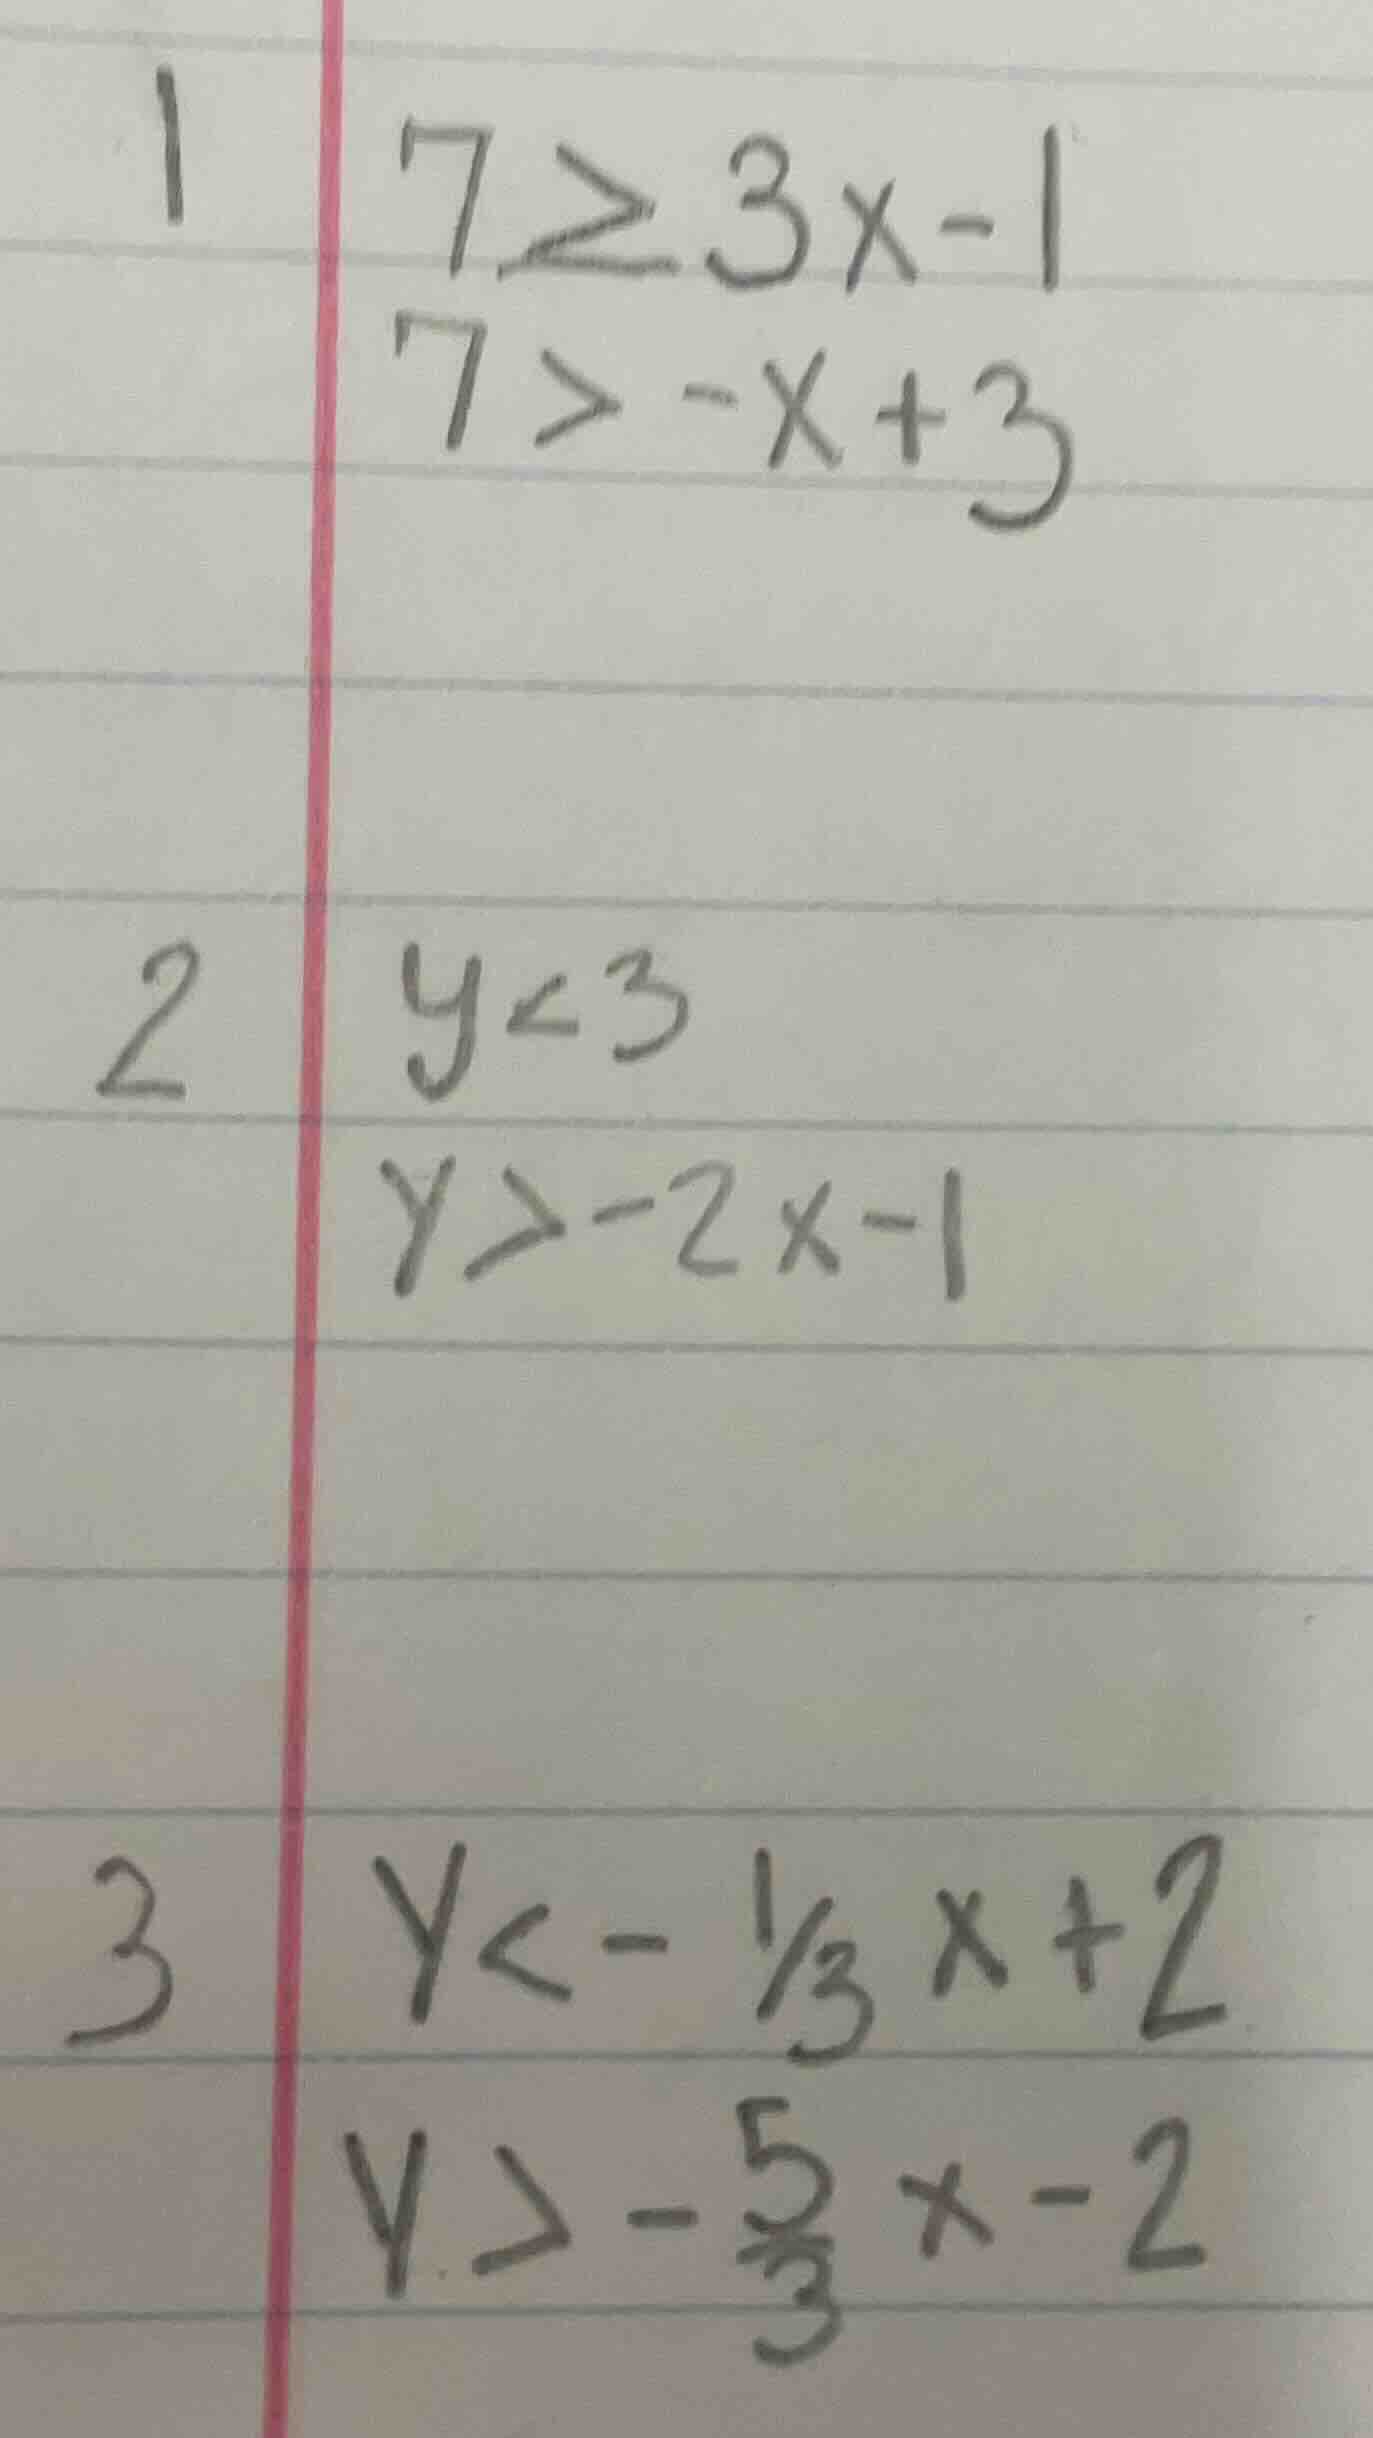 1 7 ≥ 3x - 1
7 > -x + 3
2 y < 3
y > -2x - 1
3 y < - 1/3 x + 2
y > - 5/3 x - 2